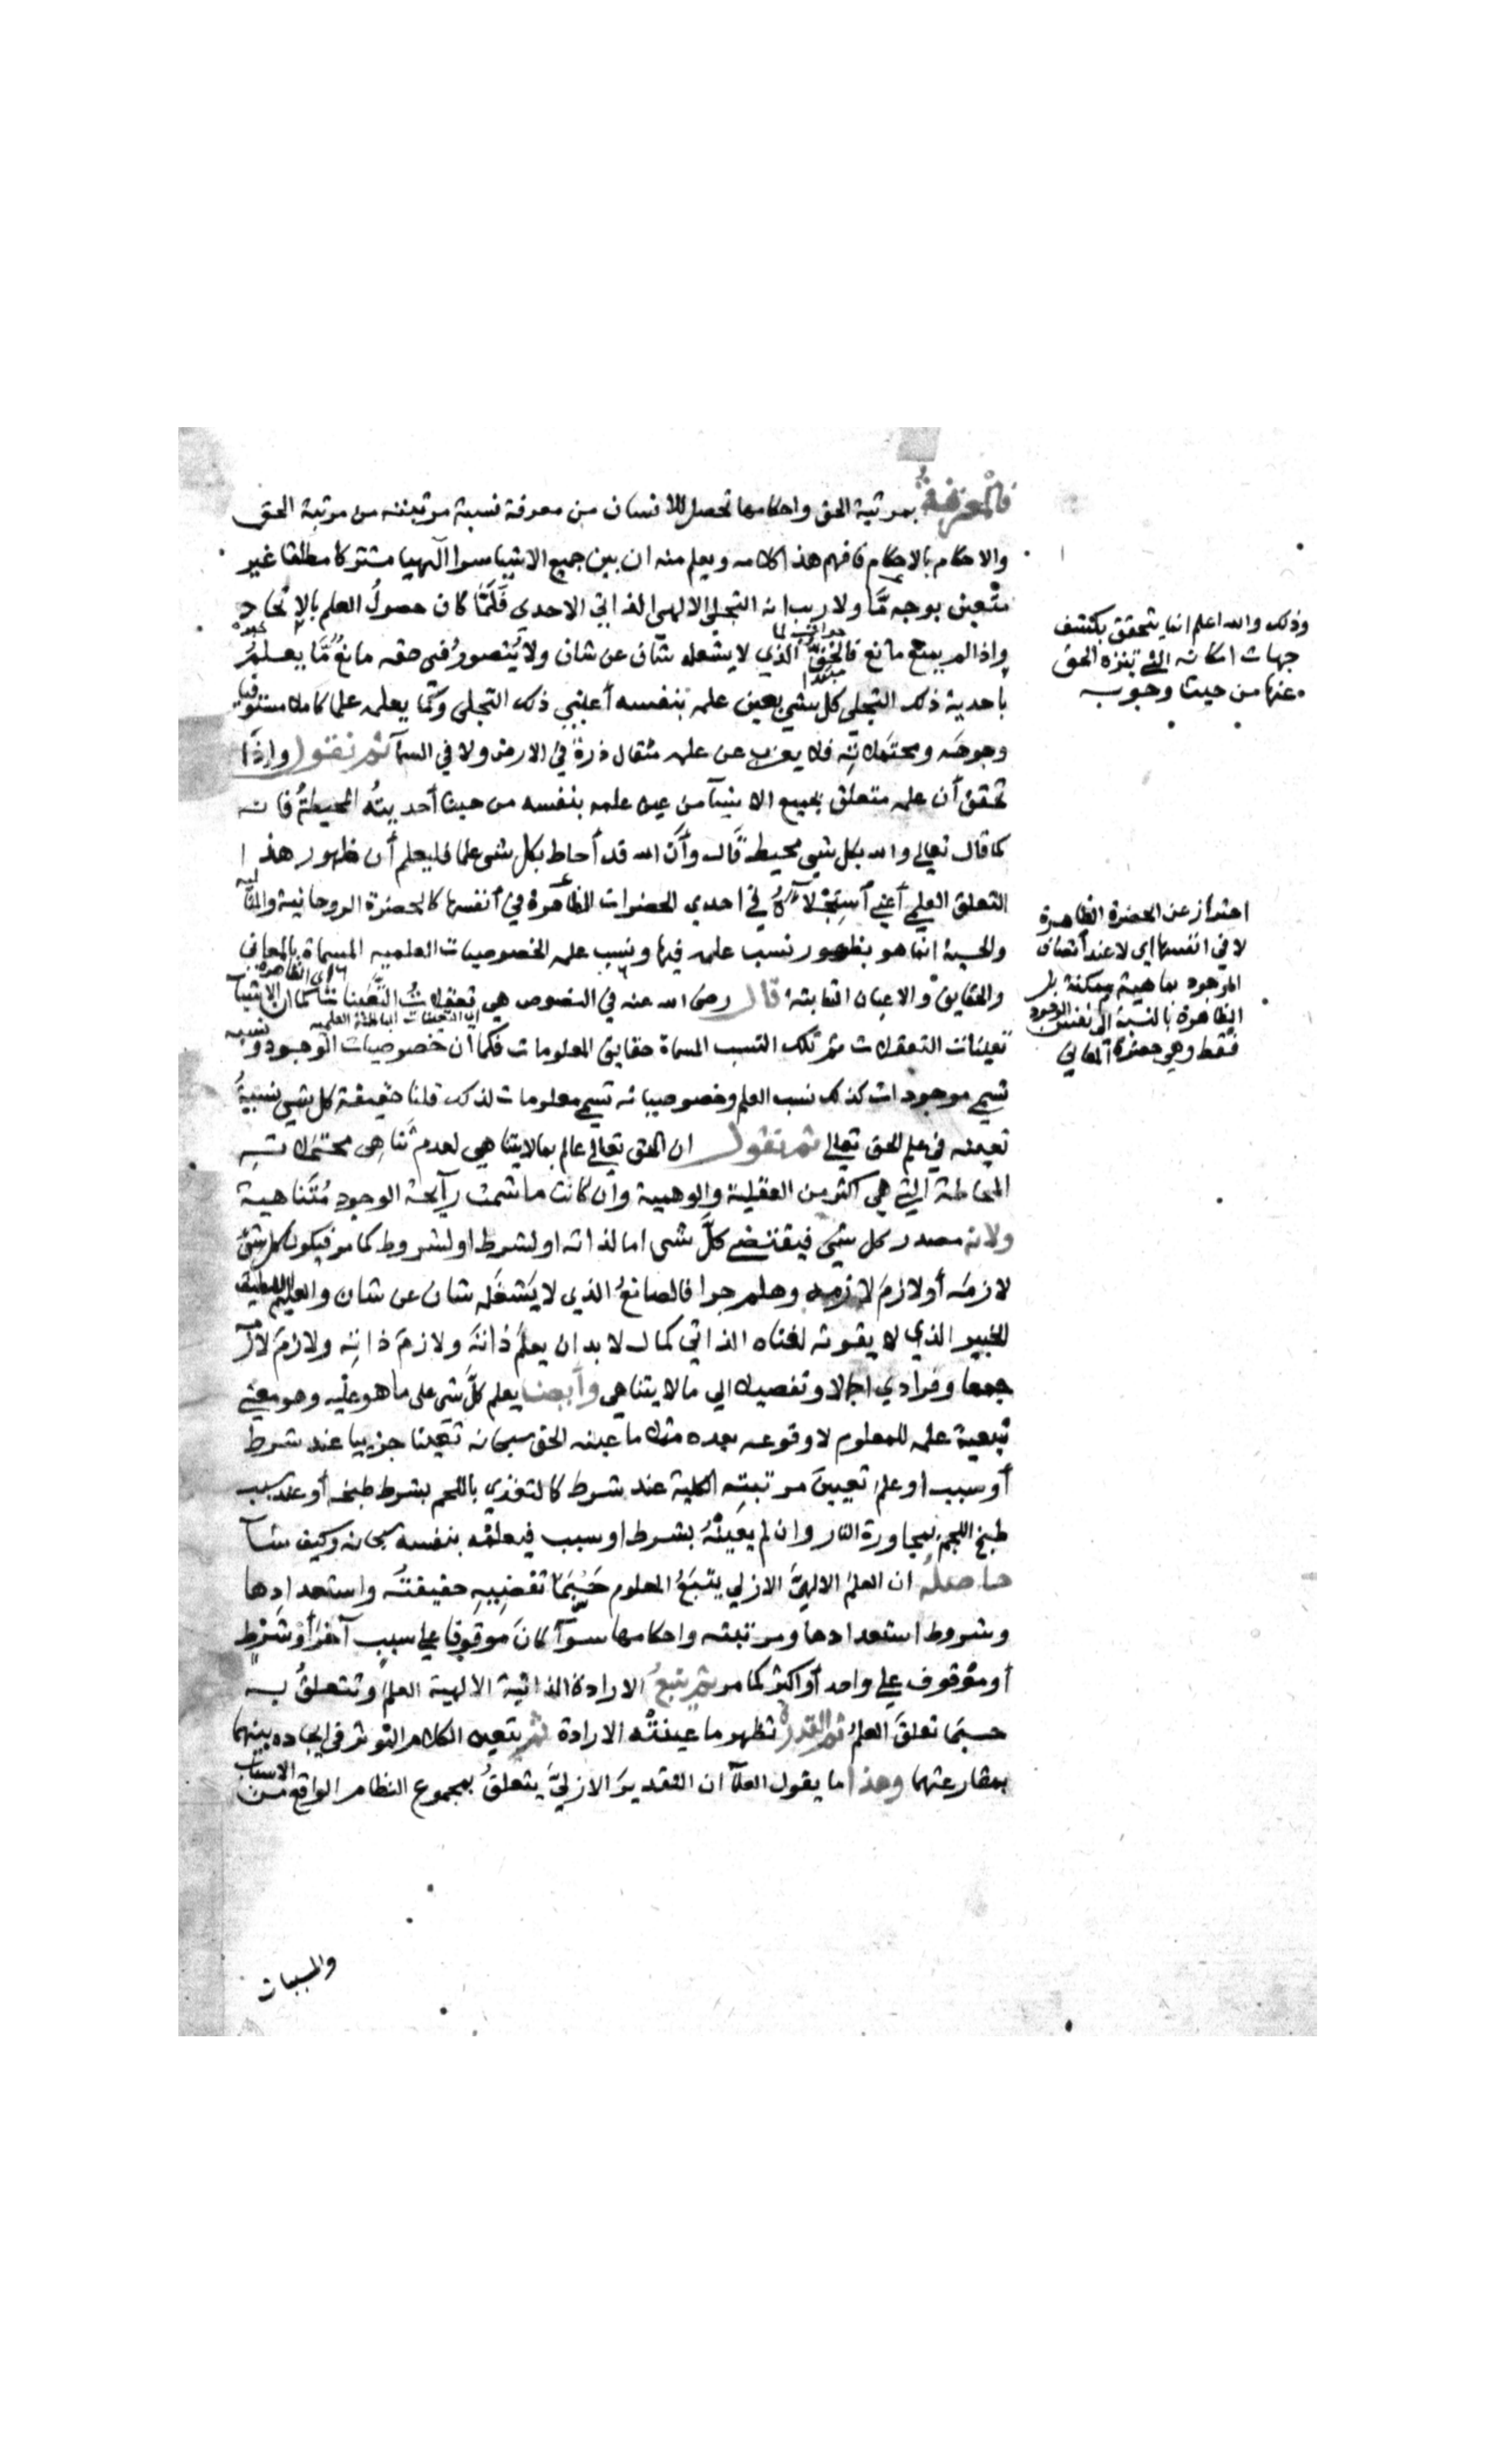 فالمعرفة بمرتبة الحق واحكامها تحصل للانسان من معرفة نسبة مرتبته من مرتبة الحق
والاحكام بالاحكام فافهم هذا كلامه ويعلم منه ان بين جميع الاشيا سوا الهيا مشتركا مطلقا غير
متعين بوجه مّا ولا ريب انه التجلي الالهي الذاتي الاحدي فلمّا كان حصولُ العلم بالاتحاد
واذا لم يمنع مانع فالحقّ الذي لا يشغله شان عن شان ولا يُتصورُ في حقه مانعٌ مّا يعلمُ
باحدية ذلك التجلي كل شي بعين علمه بنفسه أعني ذلك التجلي وممّا يعلمه علما كاملا مستوفيا
وجوهَه ومحتملاتِه فلا يعزب عن علمه مثقال ذرة في الارض ولا في السمآ ثم نقول واذَا
تحقق أن علمه متعلق بجميع الاشيآ من عين علمه بنفسه من حيث أحديتُه المحيطةُ فانه
كما قال تعالي والله بكل شي محيط قال وأنّ الله قد أحاط بكل شي علما فليعلم أن ظهور هذا
التعلق العلمي أعني أستجلاءَهُ في احدي الحضرات الظاهرة في أنفسها كالحضرة الروحانية والمثالية
والحسية انما هو بظهور نسب علمه فيها ونسب علمه الخصوصيات العلميه المسماة بالمعاني
والحقايق والاعيان الثابتة قال رضى الله عنه في النصوص هي تعقلاتُ التعينات كما ان الاشيا
تعينات التعقلات ثم تلك النسب المسماة حقايق المعلومات فكما أن خصوصيات الوجود ونسبه
تسمي موجودات كذلك نسب العلم وخصوصياته تسمي معلومات لذلك قلنا حقيقة كل شي نسبةُ
تعينه في علم الحق تعالي ثم نقول ان الحق تعالي عالم بما لا يتناهي لعدم تناهِى محتملاتِه
المحاطة التي هي اكثر من العقلية والوهمية وان كانت ما شمت رآيحة الوجود مُتناهية
ولانه مصدر كل شي فيقتضي كلَّ شى اما لذاته او لشرط او لشروط كما مر فيكون كل شي
لازمَه أو لازمَ لازمه وهلم جرا فالصانعُ الذي لا يَشغَله شان عن شان والعليم اللطيف
الخبير الذي لا يفوته لغناه الذاتي كمال لا بد ان يعلمَ ذاتَه ولازمَ ذاتِه ولازمَ لازمه
جمعا وفرادي اجمالا وتفصيلا الي ما لا يتناهي وأيضا يعلم كلَّ شي على ما هو عليه وهو معني
تبعية علمه للمعلوم لا وقوعه بعده مثلا ما عينه الحق سبحانه تعينا جزييا عند شرط
أو سبب او علم تعيينَ مرتبتِه الكلية عند شرط كالتغذي باللحم بشرط طبخه أو عند سبب
طبخ اللحم بمجاورة النار وان لم يعينْهُ بشرط او سبب فيعلمُه بنفسه سبحانه وكيف شآ
حاصلُه ان العلمَ الالهيَّ الازلي يتبعُ المعلوم حَسْبَما تقتضيهِ حقيقتُه واستعدادها
وشروط استعدادها ومرتبته واحكامها سوآ كان موقوفا على سببٍ آخرَ أو شرطٍ
أو موقوف على واحد أو اكثر كما مر ثم يتبعُ الارادةُ الذاتية الالهية العلمَ وتتعلقُ به
حسبَما تعلقَ العلمُ ثم القدرةُ تظهر ما عينتْه الارادة ثم يتعين الكلام المؤثر فى ايجاده بينهما
بمقارعتهما وهذا ما يقول العلمآ ان التقديرَ الازليَّ يتعلقُ بمجموع النظام الواقع من الاسباب
والمسببات
وذلك والله اعلم انما يتحقق بكشف
جهات امكانه التي تنزه الحق
عنها من حيث وجوبه
احتراز عن الحضرة الظاهرة
لا في انفسها اي لا عند اتصاف
الموجود بماهية ممكنة بل
الظاهرة بالنسبة الى نفس الوجود
فقط وهي حضرة المعاني